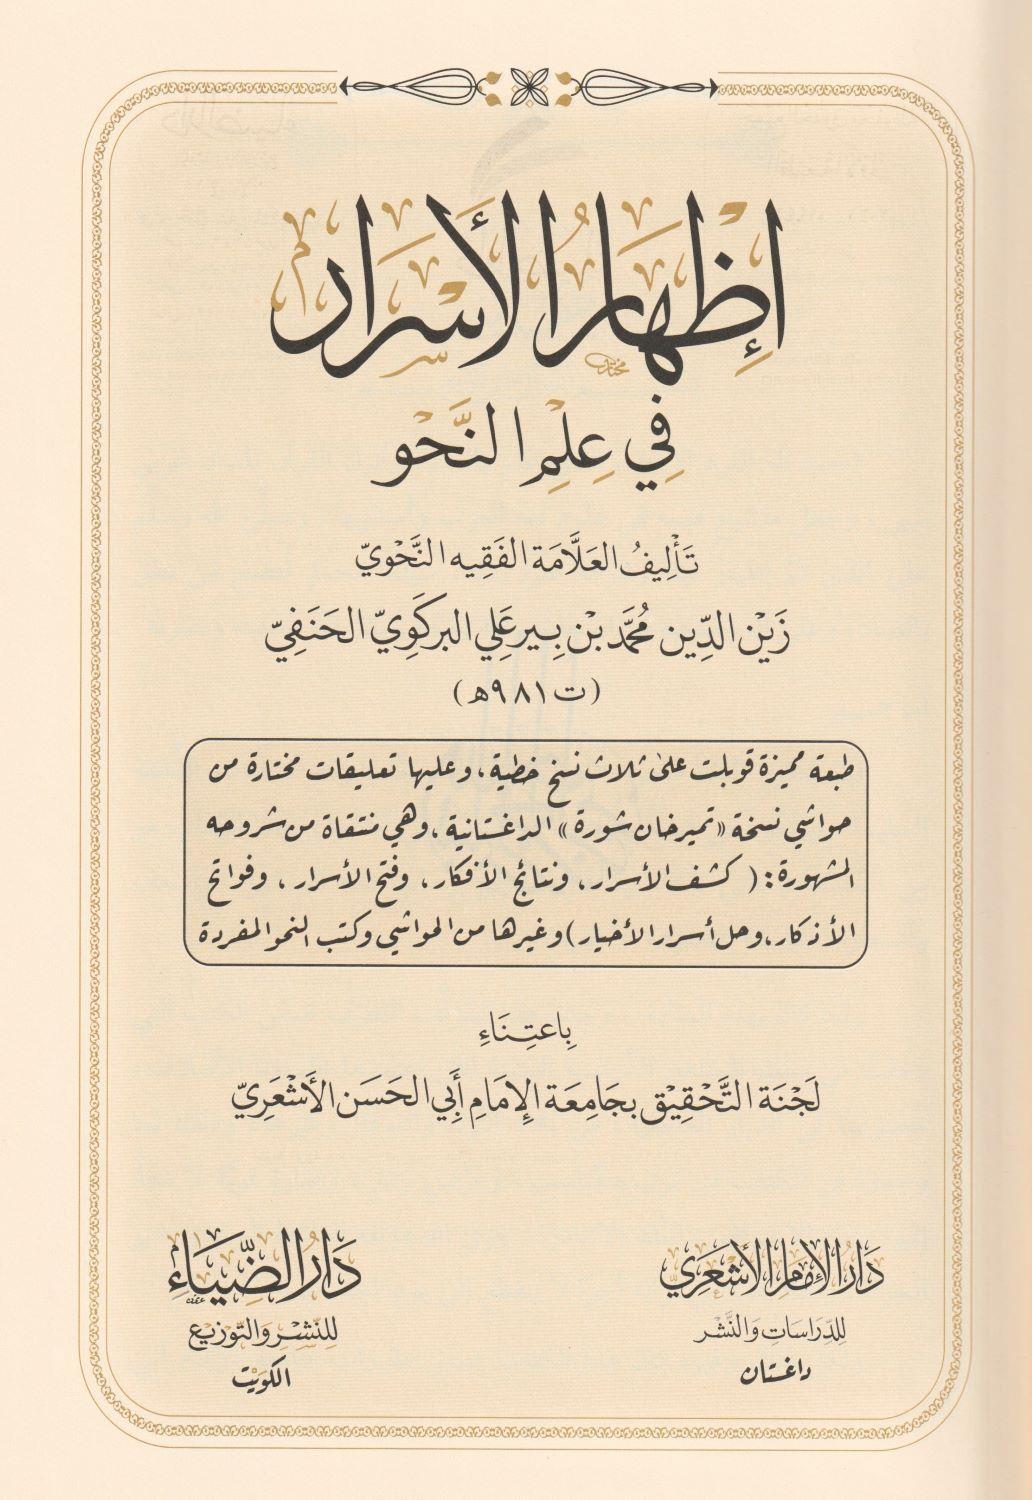 إِظْهَارُ الْأَسْرَارِ
فِي عِلْمِ النَّحْوِ
تَأْلِيفُ العَلَّامَة الفَقِيه النَّحْوِيّ
زَيْن الدِّين مُحَمَّد بْن بِير عَلِي البركَوِيّ الحَنَفِيّ
(ت ٩٨١ هـ)
طبعة مميزة قوبلت على ثلاث نسخ خطية، وعليها تعليقات مختارة من
حواشي نسخة «تميرخان شورة» الداغستانية، وهي منتقاة من شروحه
المشهورة: (كشف الأسرار، ونتائج الأفكار، وفتح الأسرار، وفواتح
الأذكار، وحل أسرار الأخيار) وغيرها من الحواشي وكتب النحو المفردة
بِاعتِنَاءِ
لَجْنَة التَّحْقِيْق بجَامِعَة الإِمَامِ أَبِي الحَسَن الأَشْعَرِيّ
دَارُ الْإِمَامِ الْأَشْعَرِي
لِلدِّرَاسَاتِ وَالنَّشْر
داغستان
دَارُ الضِّيَاءِ
لِلنَّشْرِ وَالتَّوْزِيع
الكوَيْت